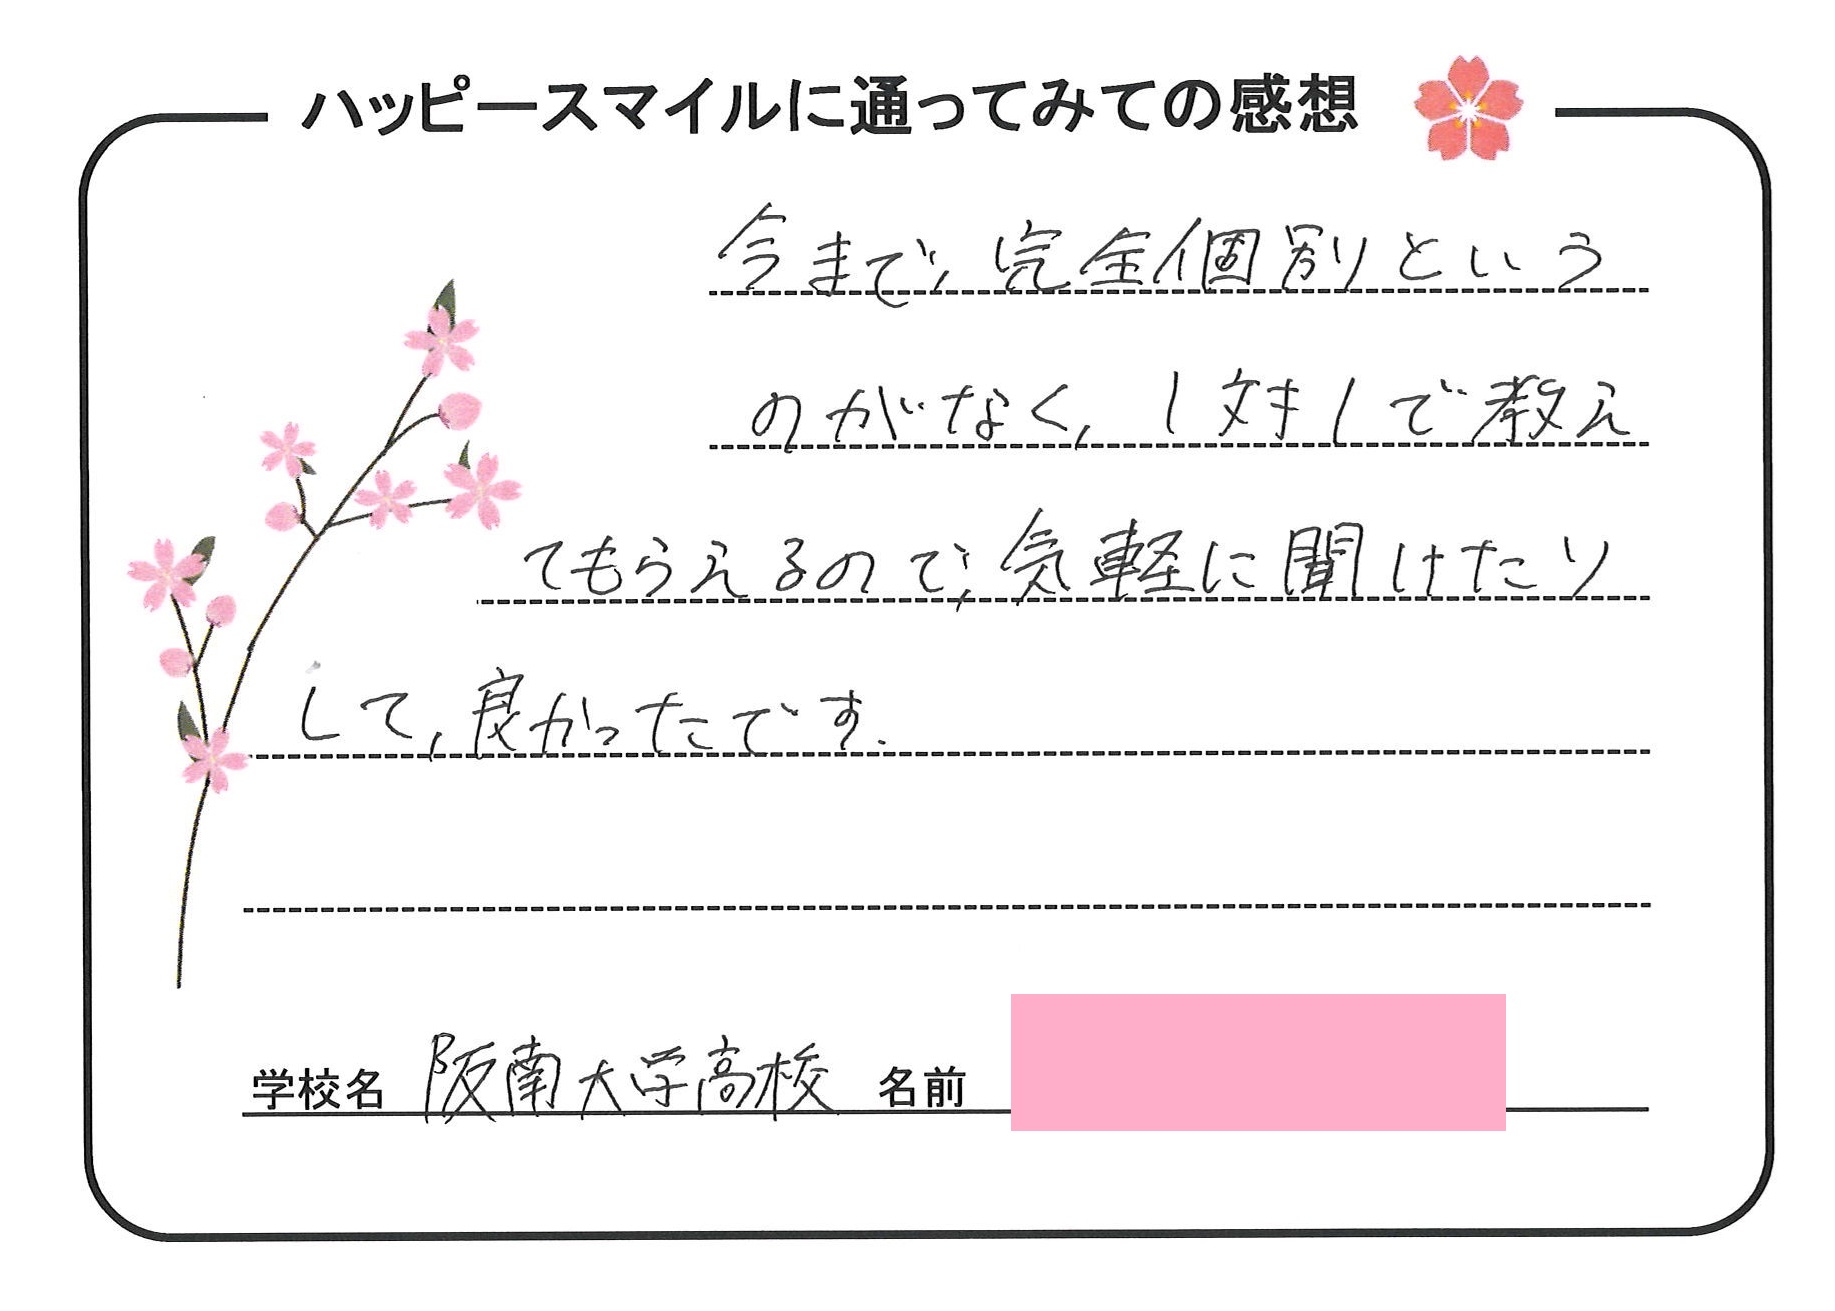 ハッピースマイルに通ってみての感想
今まで、完全個別という
のがなく、1対1で教え
てもらえるので、気軽に聞けたり
して、良かったです.
学校名 阪南大学高校 名前